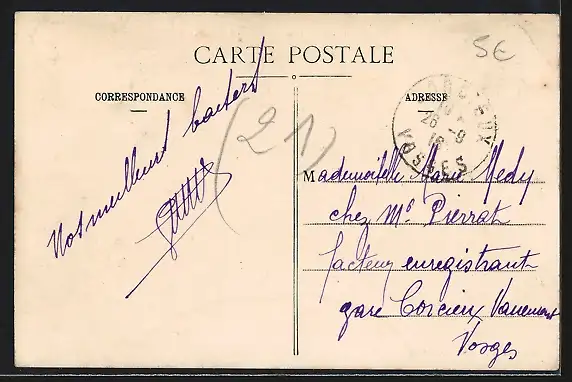 5€
CARTE POSTALE
CORRESPONDANCE
ADRESSE
VOSGES
(21)
Nos meilleurs baisers
Mademoiselle Marie Medy
chez Mr Pierrat
facteur enregistrant
gare Corcieux Vanemont
Vosges